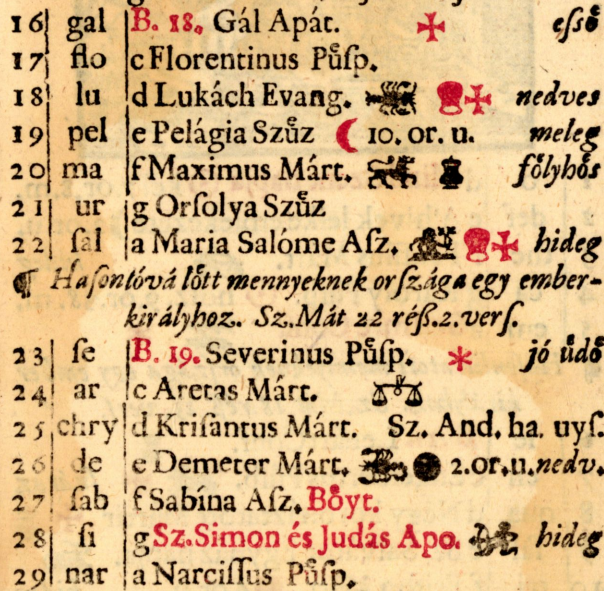 16 gal B. 18. Gál Apát. eſső
17 flo c Florentinus Pűſp.
18 lu d Lukách Evang. nedves
19 pel e Pelágia Szűz 10. or. u. meleg
20 ma f Maximus Márt. főlyhős
21 ur g Orſolya Szűz
22 ſal a Maria Salóme Aſz. hideg
¶ Haſontóvá lőtt mennyeknek orſzága egy ember-
királyhoz. Sz.Mát 22 réß.2.verſ.
23 ſe B. 19. Severinus Pűſp. jó űdő
24 ar c Aretas Márt.
25 chry d Kriſantus Márt. Sz. And. ha. uyſ.
26 de e Demeter Márt. 2.or.u.nedv.
27 ſab f Sabína Aſz. Bőyt.
28 ſi g Sz.Simon és Judás Apo. hideg
29 nar a Narciſſus Pűſp.